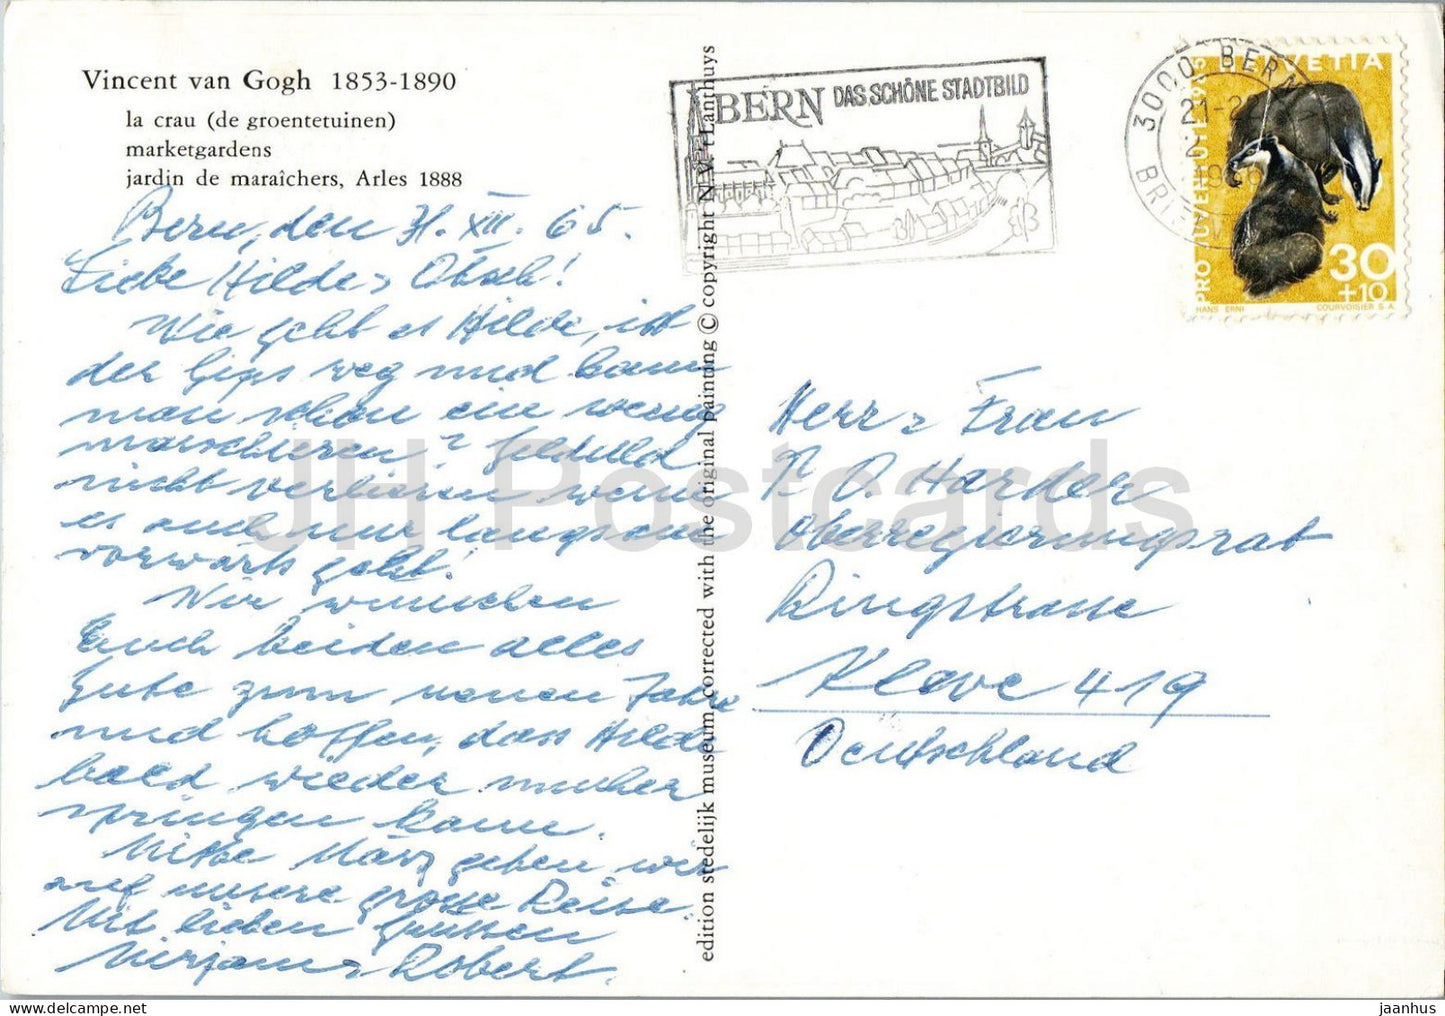 Vincent van Gogh 1853-1890
la crau (de groentetuinen)
marketgardens
jardin de maraîchers, Arles 1888
Bern, den 31. XII. 65.
Liebe Hilde, Otsch!
Wie geht es Hilde, ist
der Gips weg und kann
man schon ein wenig
marschieren? Geduld
nicht verlieren wenn
es auch nur langsam
vorwärts geht!
Wir wünschen
Euch beiden alles
Gute zum neuen Jahre
und hoffen, dass Hilde
bald wieder umher
springen kann.
Mitte März gehen wir
auf unsere grosse Reise.
Mit lieben Grüssen
Mirjam & Robert
edition stedelijk museum, corrected with the original painting © copyright N.V. 't Lanthuys
BERN DAS SCHÖNE STADTBILD
3000 BERN
HELVETIA
PRO JUVENTUTE 1965
30
+10
HANS ERNI
COURVOISIER S.A.
Herr & Frau
O. Harder
Oberregierungsrat
Ringstrasse
Kleve 419
Deutschland
JH Postcards
jaanhus
https://jhpostcards.com